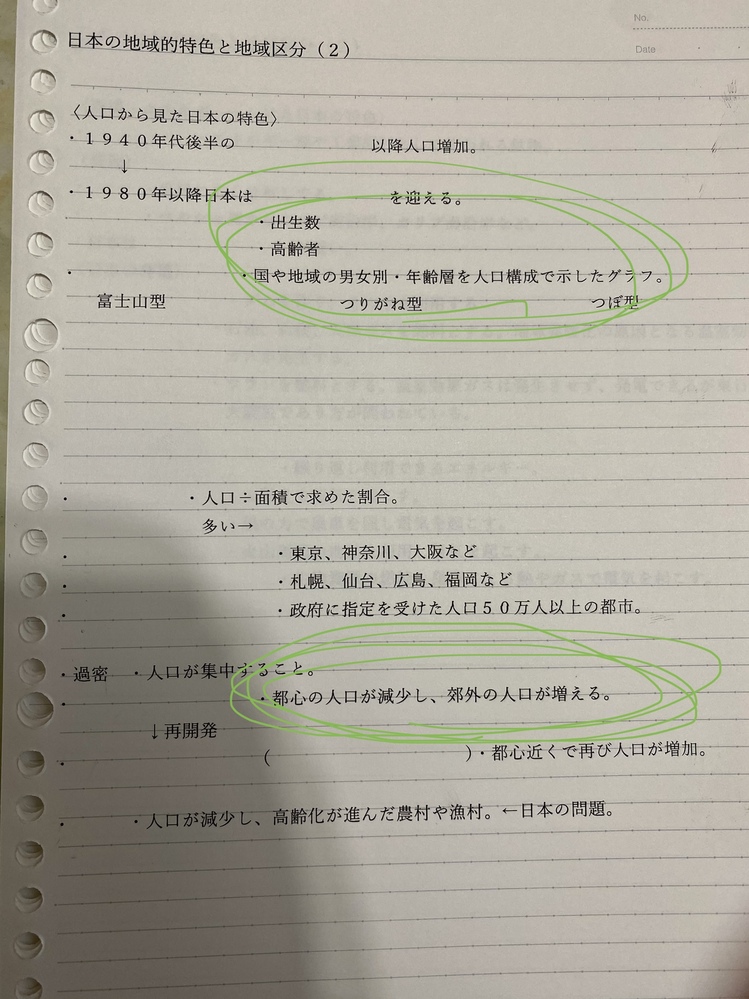 No.
Date
日本の地域的特色と地域区分（２）
〈人口から見た日本の特色〉
・１９４０年代後半の 以降人口増加。
↓
・１９８０年以降日本は を迎える。
・出生数
・高齢者
・ ・国や地域の男女別・年齢層を人口構成で示したグラフ。
富士山型 つりがね型 つぼ型
・ ・人口÷面積で求めた割合。
多い→
・ ・東京、神奈川、大阪など
・ ・札幌、仙台、広島、福岡など
・ ・政府に指定を受けた人口５０万人以上の都市。
・過密 ・人口が集中すること。
・ ・都心の人口が減少し、郊外の人口が増える。
↓再開発
・ （ ）・都心近くで再び人口が増加。
・ ・人口が減少し、高齢化が進んだ農村や漁村。←日本の問題。